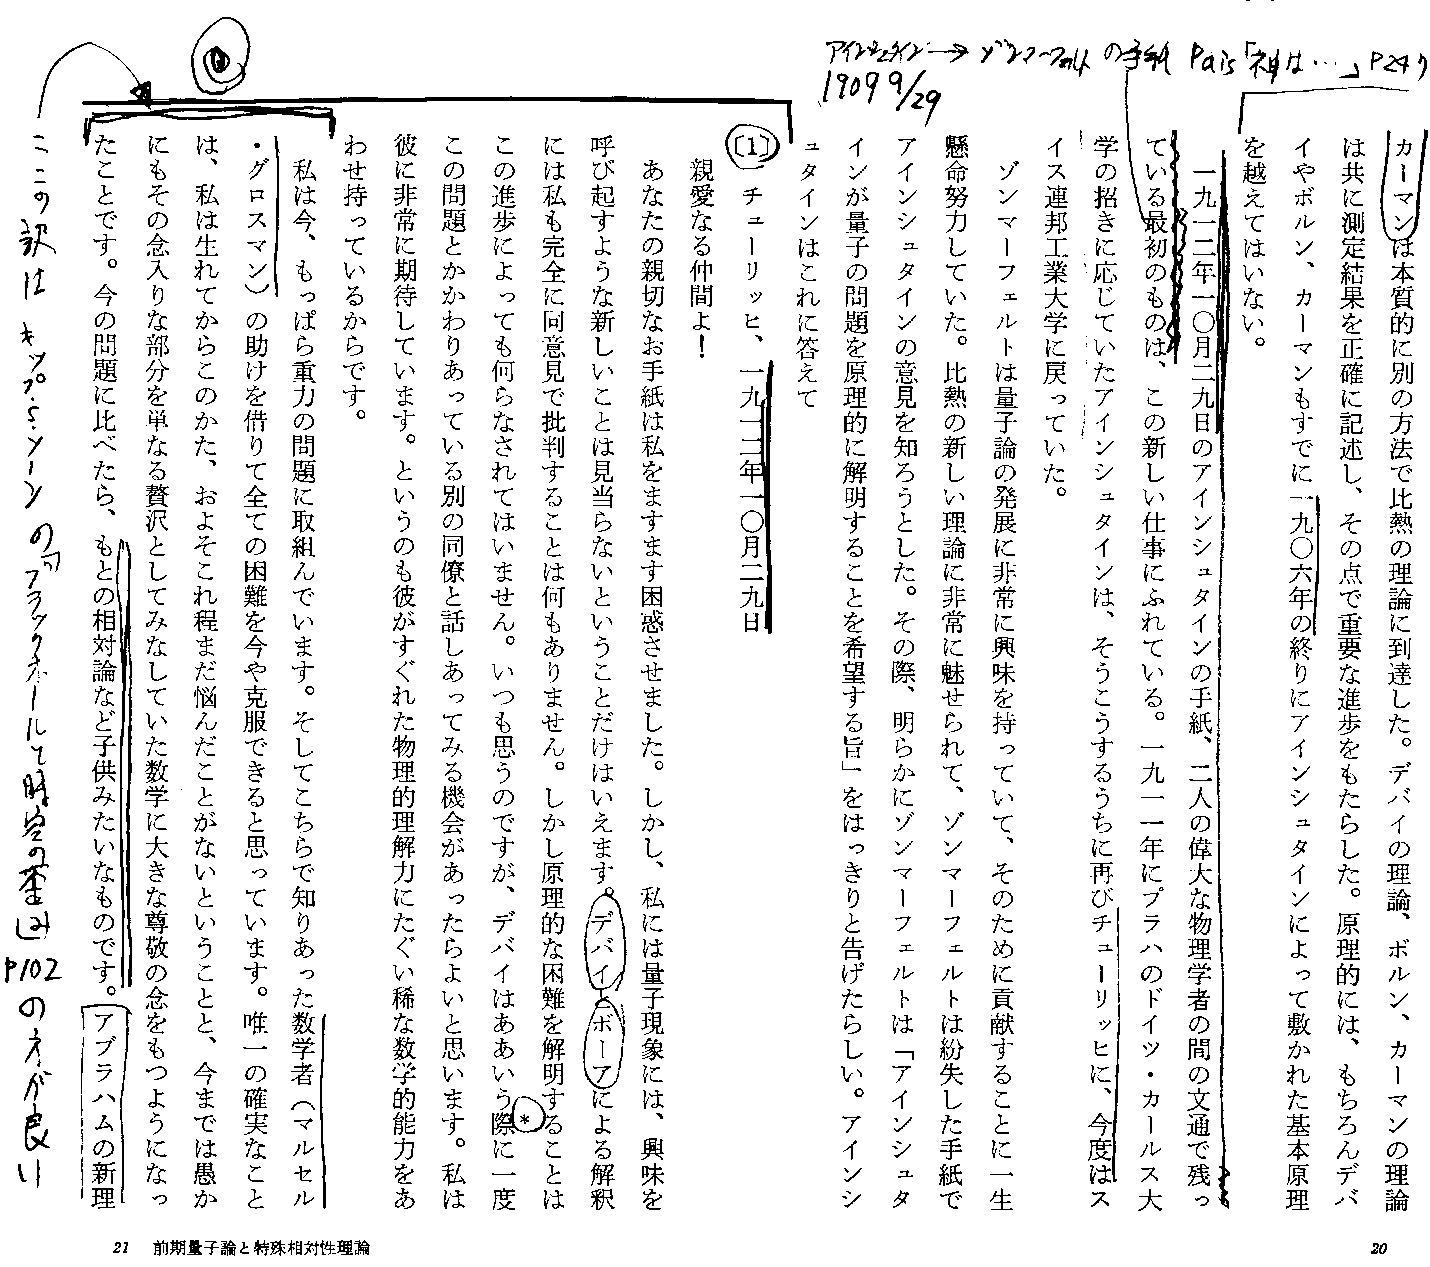 アインシュタイン→ゾンマーフェルトの手紙 Pais「神は…」P247
1909 9/29
カーマンは本質的に別の方法で比熱の理論に到達した。デバイの理論、ボルン、カーマンの理論
は共に測定結果を正確に記述し、その点で重要な進歩をもたらした。原理的には、もちろんデバ
イやボルン、カーマンもすでに一九〇六年の終りにアインシュタインによって敷かれた基本原理
を越えてはいない。
一九一二年一〇月二九日のアインシュタインの手紙、二人の偉大な物理学者の間の文通で残っ
ている最初のものは、この新しい仕事にふれている。一九一一年にプラハのドイツ・カールス大
学の招きに応じていたアインシュタインは、そうこうするうちに再びチューリッヒに、今度はス
イス連邦工業大学に戻っていた。
ゾンマーフェルトは量子論の発展に非常に興味を持っていて、そのために貢献することに一生
懸命努力していた。比熱の新しい理論に非常に魅せられて、ゾンマーフェルトは紛失した手紙で
アインシュタインの意見を知ろうとした。その際、明らかにゾンマーフェルトは「アインシュタ
インが量子の問題を原理的に解明することを希望する旨」をはっきりと告げたらしい。アインシ
ュタインはこれに答えて
〔1〕チューリッヒ、一九一二年一〇月二九日
親愛なる仲間よ!
あなたの親切なお手紙は私をますます困惑させました。しかし、私には量子現象には、興味を
呼び起すような新しいことは見当らないということだけはいえます。デバイとボーアによる解釈
には私も完全に同意見で批判することは何もありません。しかし原理的な困難を解明することは
この進歩によっても何らなされてはいません。いつも思うのですが、デバイはああいう際に一度*
この問題とかかわりあっている別の同僚と話しあってみる機会があったらよいと思います。私は
彼に非常に期待しています。というのも彼がすぐれた物理的理解力にたぐい稀な数学的能力をあ
わせ持っているからです。
私は今、もっぱら重力の問題に取組んでいます。そしてこちらで知りあった数学者(マルセル
・グロスマン)の助けを借りて全ての困難を今や克服できると思っています。唯一の確実なこと
は、私は生れてからこのかた、およそこれ程まだ悩んだことがないということと、今までは愚か
にもその念入りな部分を単なる贅沢としてみなしていた数学に大きな尊敬の念をもつようになっ
たことです。今の問題に比べたら、もとの相対論など子供みたいなものです。アブラハムの新理
ここの訳はキップ・ソーンの「ブラックホールと時空の歪み」P102のネが良い
21 前期量子論と特殊相対性理論
20